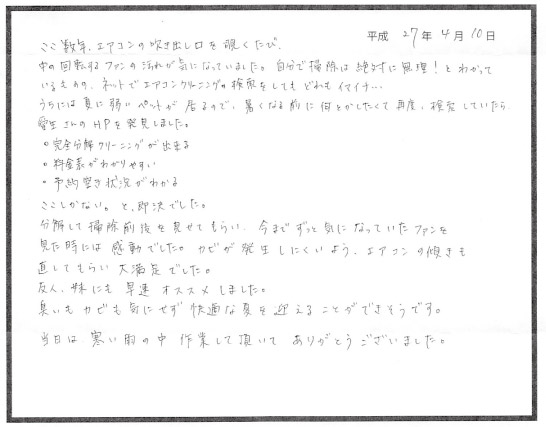 平成 27年 4月 10日
ここ数年、エアコンの吹き出し口を覗くたび、
中の回転するファンの汚れが気になっていました。自分で掃除は絶対に無理！とわかって
いるものの、ネットでエアコンクリーニングの検索をしてもどれもイマイチ…
うちには夏に弱いペットが居るので、暑くなる前に何とかしたくて再度、検索していたら
愛生さんのHPを発見しました。
・完全分解クリーニングが出来る
・料金表がわかりやすい
・予約空き状況がわかる
ここしかない。と、即決でした。
分解して掃除前後を見せてもらい、今までずっと気になっていたファンを
見た時には感動でした。カビが発生しにくいよう、エアコンの傾きも
直してもらい大満足でした。
友人、妹にも早速オススメしました。
臭いもカビも気にせず快適な夏を迎えることができそうです。
当日は寒い雨の中作業して頂いてありがとうございました。